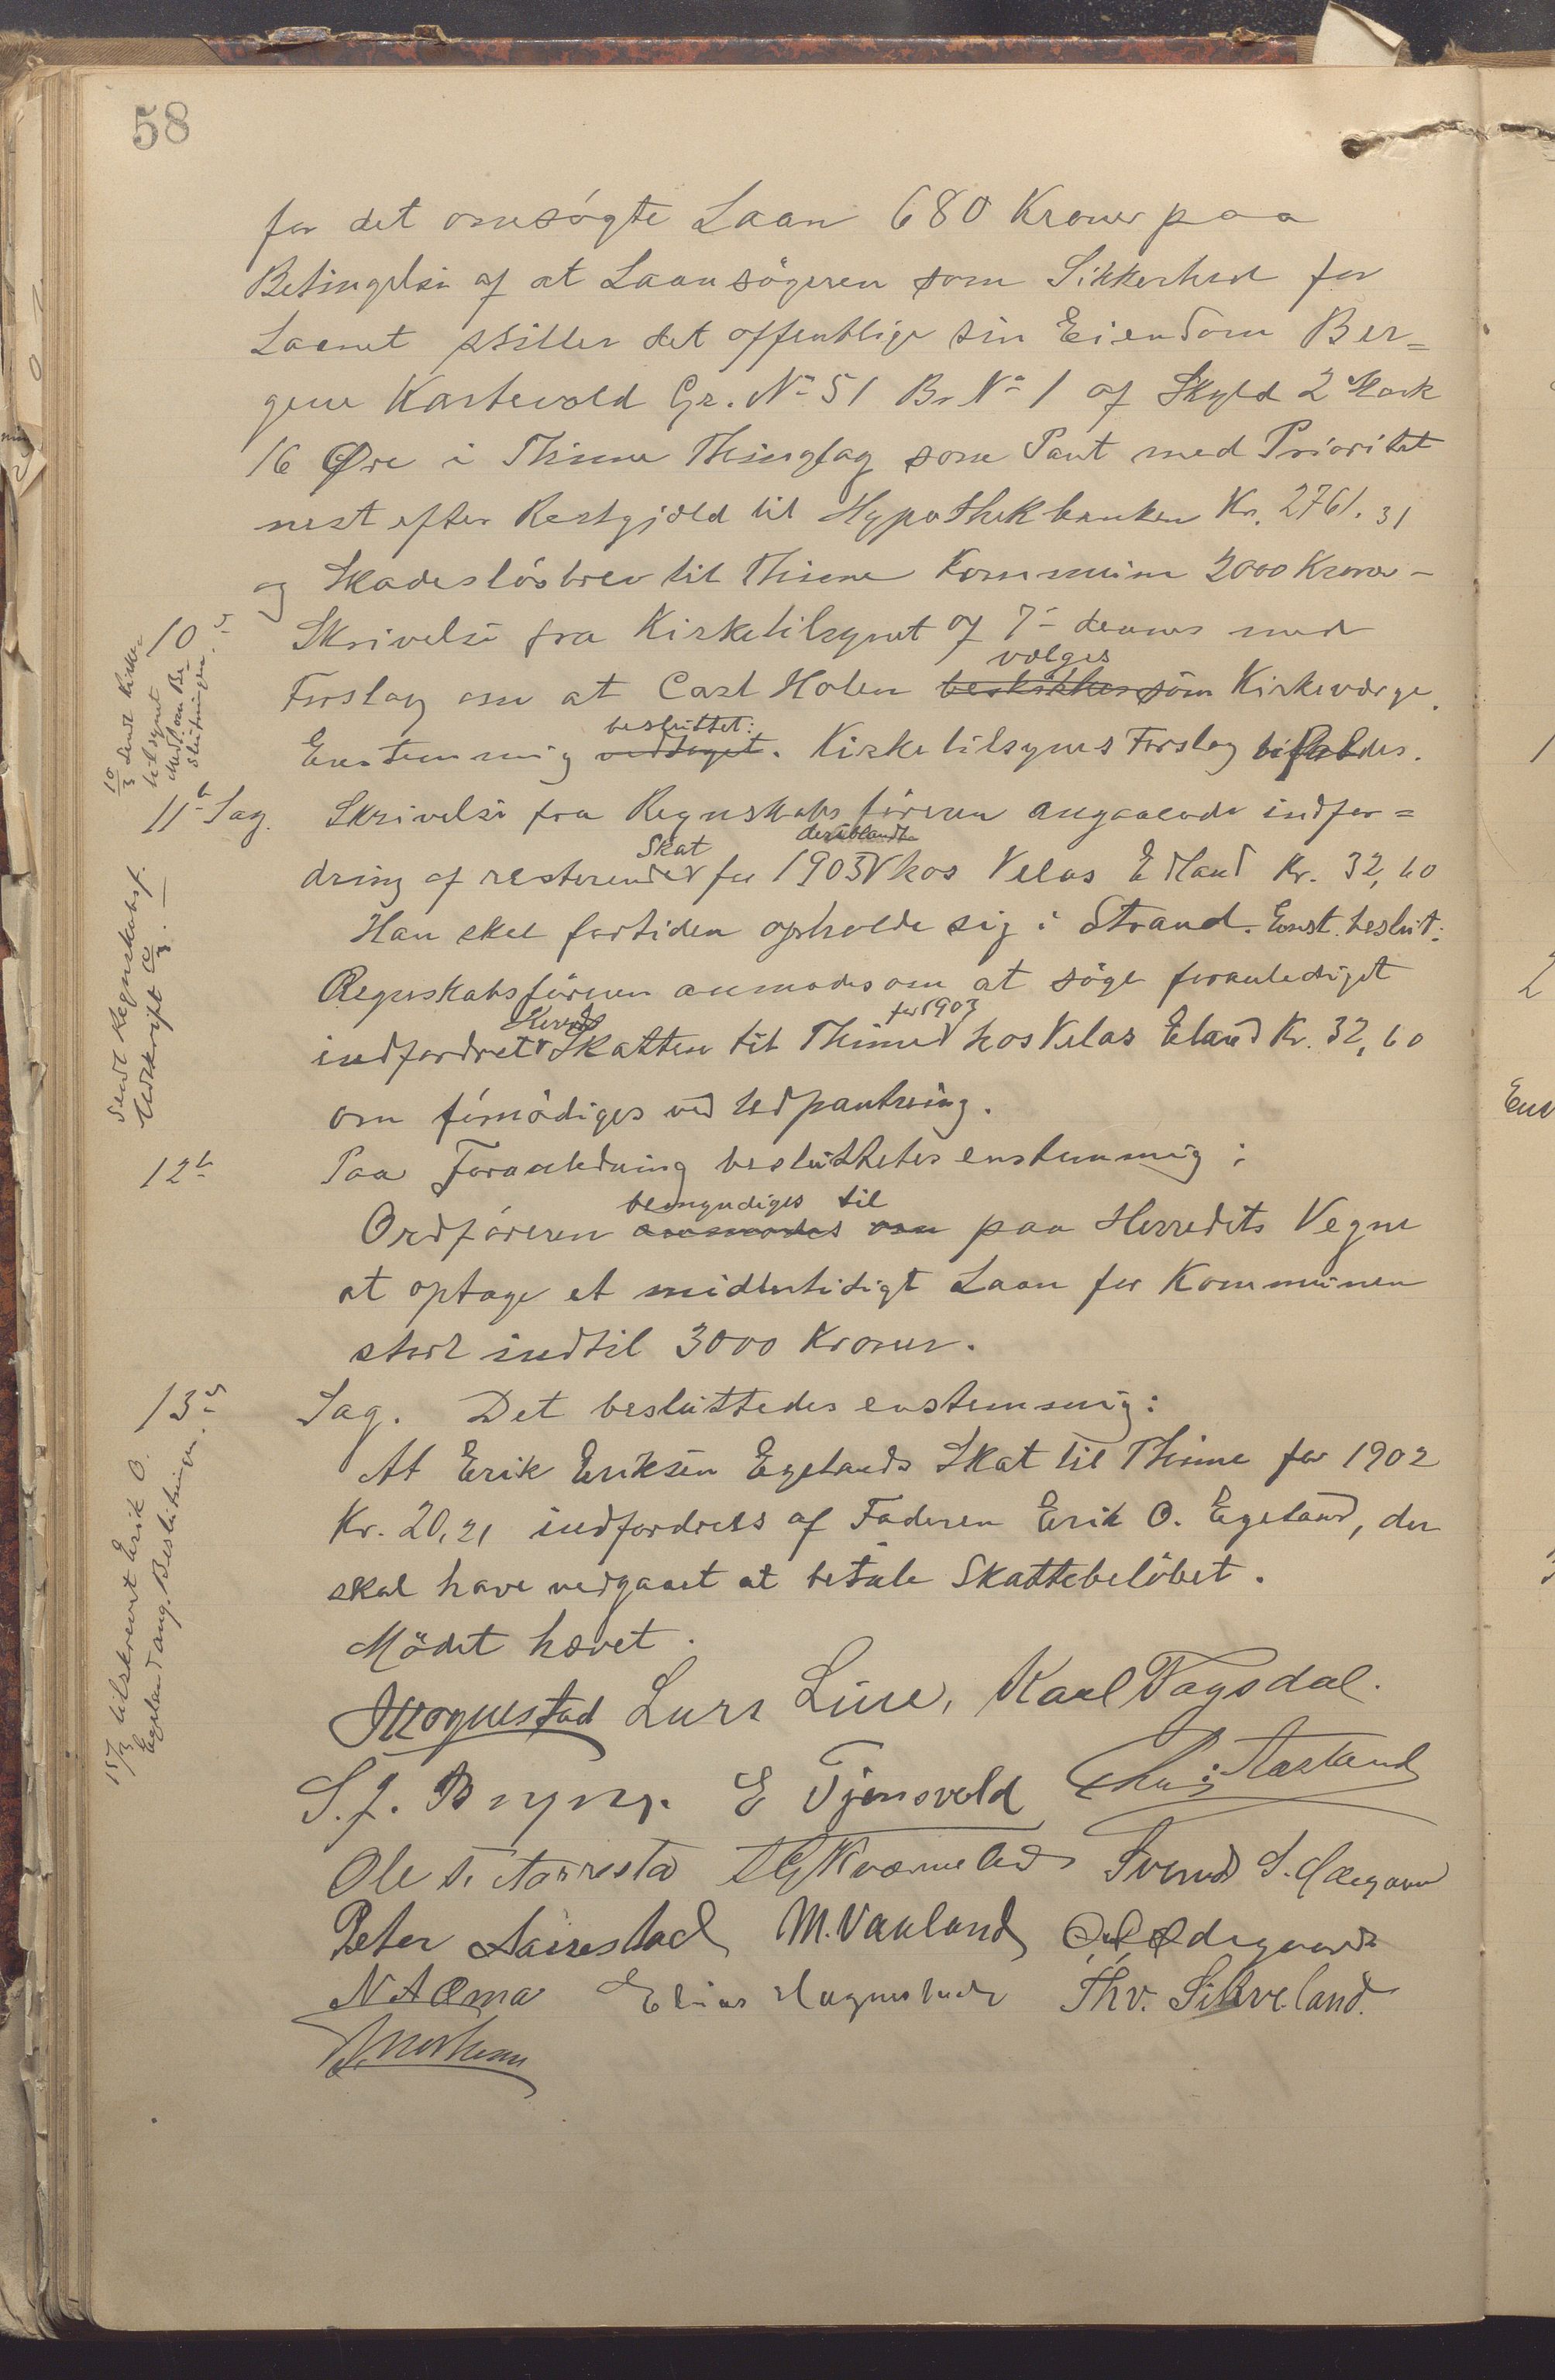 58
for det omsøgte Laan 680 Kroner paa
Betingelse af at Laansøgeren som Sikkerhed for
Laanet stiller det offentlige sin Eiendom Ber=
gene Kartevold Gr. No 51 Br No 1 af Skyld 2 Mark
16 Øre i Thime Thinglag som Pant med Prioritet
nest efter Restgjæld til Hypothekbanken Kr. 2761.31
og Skadesløsbrev til Thime Kommune 2000 Kroner –
10de
Skrivelse fra Kirketilsynet af 7de dennes med
Forslag om at Carl Holen beskikkes vælges som Kirkeværge.
Enstemmig vedtaget. besluttet: Kirketilsynets Forslag bifaldes.
10/3 sendt Kirke-
tilsynet
Medd om Be-
slutningen.
11te Sag. Skrivelse fra Regnskabsføreren angaaende indfor=
dring af resterende Skat for 1903 deriblandt hos Velas Eland Kr. 32,60
Han skal fortiden opholde sig i Strand. Enst. beslut:
Regnskabsføreren anmodes om at søge foranlediget
indfordret Herreds Skatten til Thime for 1903 hos Velas Eland Kr. 32,60
om fornødiges ved Udpantning.
Sendt Regnskabsf.
Udskrift 10/3. —
12te Paa Foranledning besluttetes enstemmig:
Ordføreren anmodes om bemyndiges til paa Herredets Vegne
at optage et midlertidigt Laan for Kommunen
stort indtil 3000 Kroner.
13de Sag. Det besluttedes enstemmig:
At Erik Eriksen Egelands Skat til Thime for 1902
Kr. 20,21 indfordres af Faderen Erik O. Egeland, der
skal have vedgaaet at betale Skattebeløbet.
15/3 tilskrevet Erik O.
Egeland ang. Beslutningen.
Mødet hævet.
Lars Line, Karl Fagsdal.
S. J. Bryne. E Tjensvold
Ole T. Aarrestad Svend S.
Peter Aarrestad M. Vauland Ødegaard
N A Elias Haugnestad Thv. Sikveland.